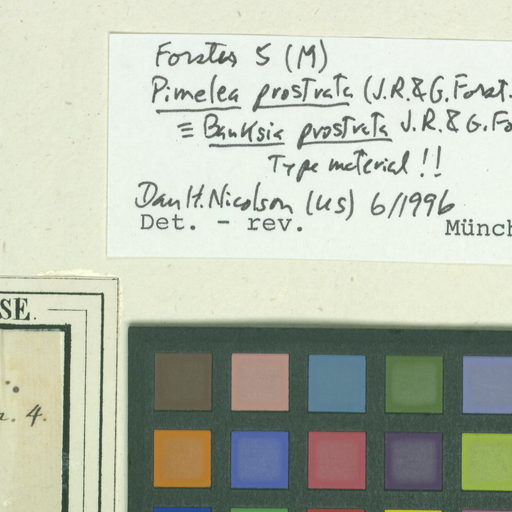 Forster 5 (M)
Pimelea prostrata (J.R.&G.Forst.
≡ Banksia prostrata J.R.&G.Fo
Type material !!
Dan H. Nicolson (US) 6/1996
Det. - rev. Münch
SE.
4.